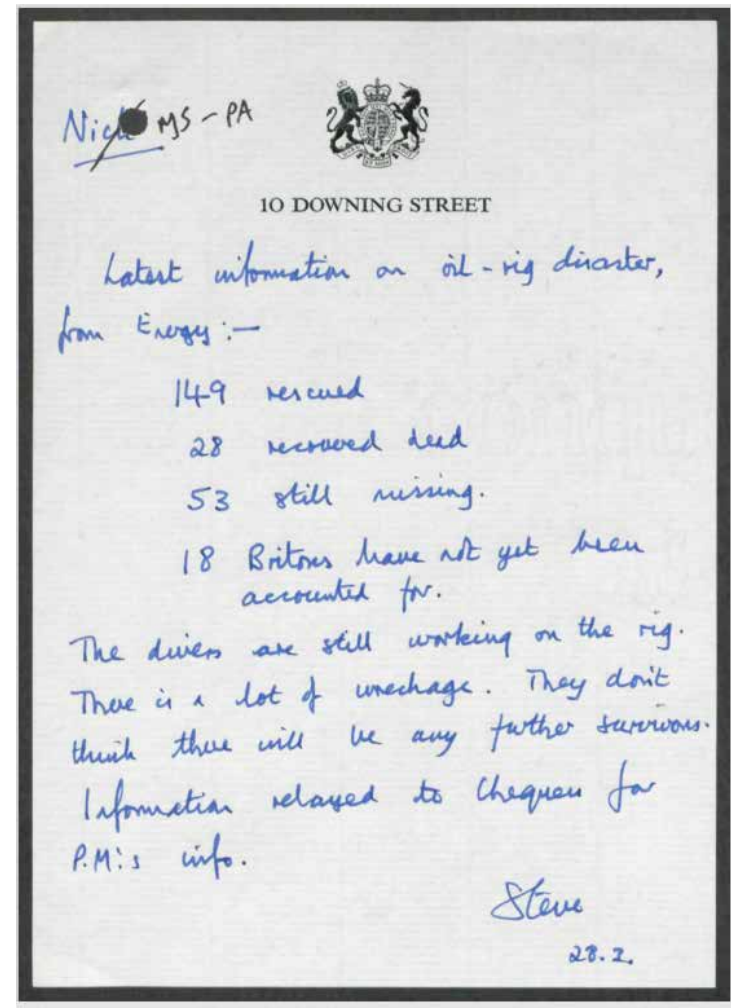 Nick MS - PA
10 DOWNING STREET
Latest information on oil-rig disaster,
from Energy :—
149 rescued
28 recovered dead
53 still missing.
18 Britons have not yet been
accounted for.
The divers are still working on the rig.
There is a lot of wreckage. They don't
think there will be any further survivors.
Information relayed to Chequers for
P.M.'s info.
Steve
28.2.